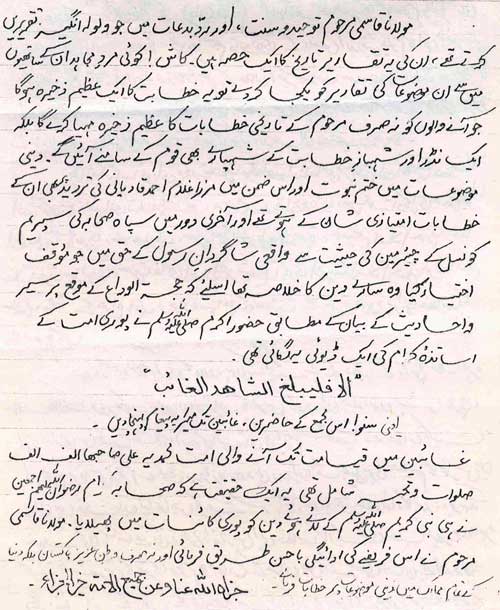 مولانا قاسمی مرحوم توحید و سنت، اور ردّ بدعات میں جو ولولہ انگیز تقریریں
کرتے تھے، ان کی یہ تقاریر تاریخ کا ایک حصہ ہیں۔ کاش! کوئی مردِ مجاہد ان کے ساتھیوں
میں سے ان موضوعات کی تقاریر کو یکجا کر دے تو یہ خطابت کا ایک عظیم ذخیرہ ہوگا
جو آنے والوں کو نہ صرف مرحوم کے تاریخی خطابات کا عظیم ذخیرہ مہیا کرے گا بلکہ
ایک نڈر اور شہبازِ خطابت کے شہپارے بھی قوم کے سامنے آئیں گے۔ دینی
موضوعات میں ختم نبوت اور اس ضمن میں مرزا غلام احمد قادیانی کی تردید بھی ان کے
خطابات امتیازی شان کے ہوتے تھے اور آخری دور میں سپاہ صحابہ کی سپریم
کونسل کے چیئرمین کی حیثیت سے واقعی شاگردانِ رسول کے حق میں جو مؤقف
اختیار کیا وہ سارے دین کا خلاصہ تھا اسلئے کہ حجۃ الوداع کے موقع پر سیر
و احادیث کے بیان کے مطابق حضور اکرم صلی اللہ علیہ وسلم نے پوری امت کے
اساتذہ کرام کی ایک ڈیوٹی یہ لگائی تھی۔
"الا فلیبلغ الشاھد الغائب"
یعنی سنو! اس مجمع کے حاضرین، غائبین تک میرا یہ پیغام پہنچا دیں۔
غائبین میں قیامت تک آنے والی امت محمدیہ علی صاحبھا الف الف
صلوات و تحیہ شامل تھی یہ ایک حقیقت ہے کہ صحابہ کرام رضوان اللہ علیہم اجمعین
نے ہی نبی کریم صلی اللہ علیہ وسلم کے لائے ہوئے دین کو پوری کائنات میں پھیلا دیا۔ مولانا قاسمی
مرحوم نے اس فریضے کی ادائیگی باحسن طریق فرمائی اور نہ صرف وطن عزیز پاکستان بلکہ دنیا
کے تمام ممالک میں دینی موضوعات پر خطابات فرمائے۔ جزاہ اللہ عنا و عن جمیع الامۃ خیر الجزاء۔